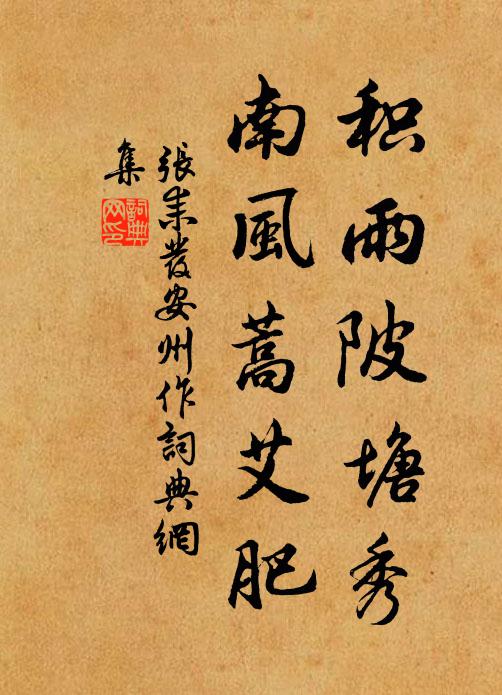 积雨陂塘秀
南風蒿艾肥
張耒發安州作詞典網
集
詞典
网印